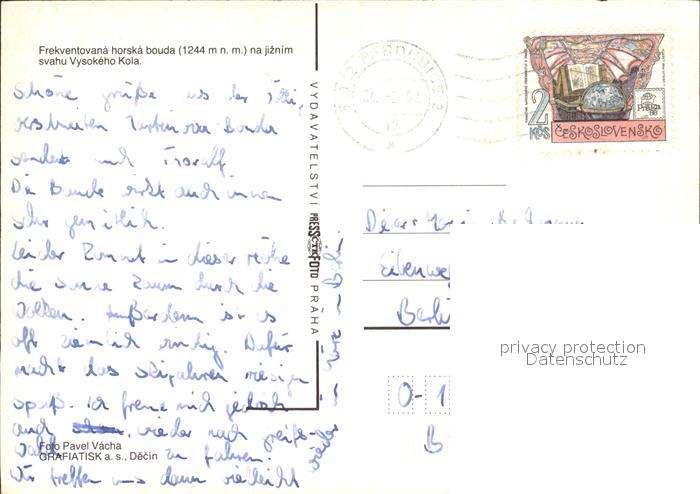 Frekventovaná horská bouda (1244 m n. m.) na jižním
svahu Vysokého Kola.
Schöne Grüße aus der
Bouda
sendet und
Die Baude wirkt auch innen
sehr gemütlich.
Leider kommt in dieser Höhe
die Sonne kaum durch die
Wolken. Außerdem ist es
oft ziemlich windig. Dafür
macht das Skifahren riesigen
Spaß. Ich freue mich jedoch
auch schon, wieder nach Greifs-
wald zu fahren.
Wir treffen uns dann vielleicht
wieder im März in Berlin.
Foto Pavel Vácha
GRAFIATISK a. s., Děčín
VYDAVATELSTVÍ PRESSFOTO PRAHA
PARDUBICE 2
2 Kčs
ČESKOSLOVENSKO
Praga
88
Eibenwe
Berli
O-1
B
privacy protection
Datenschutz